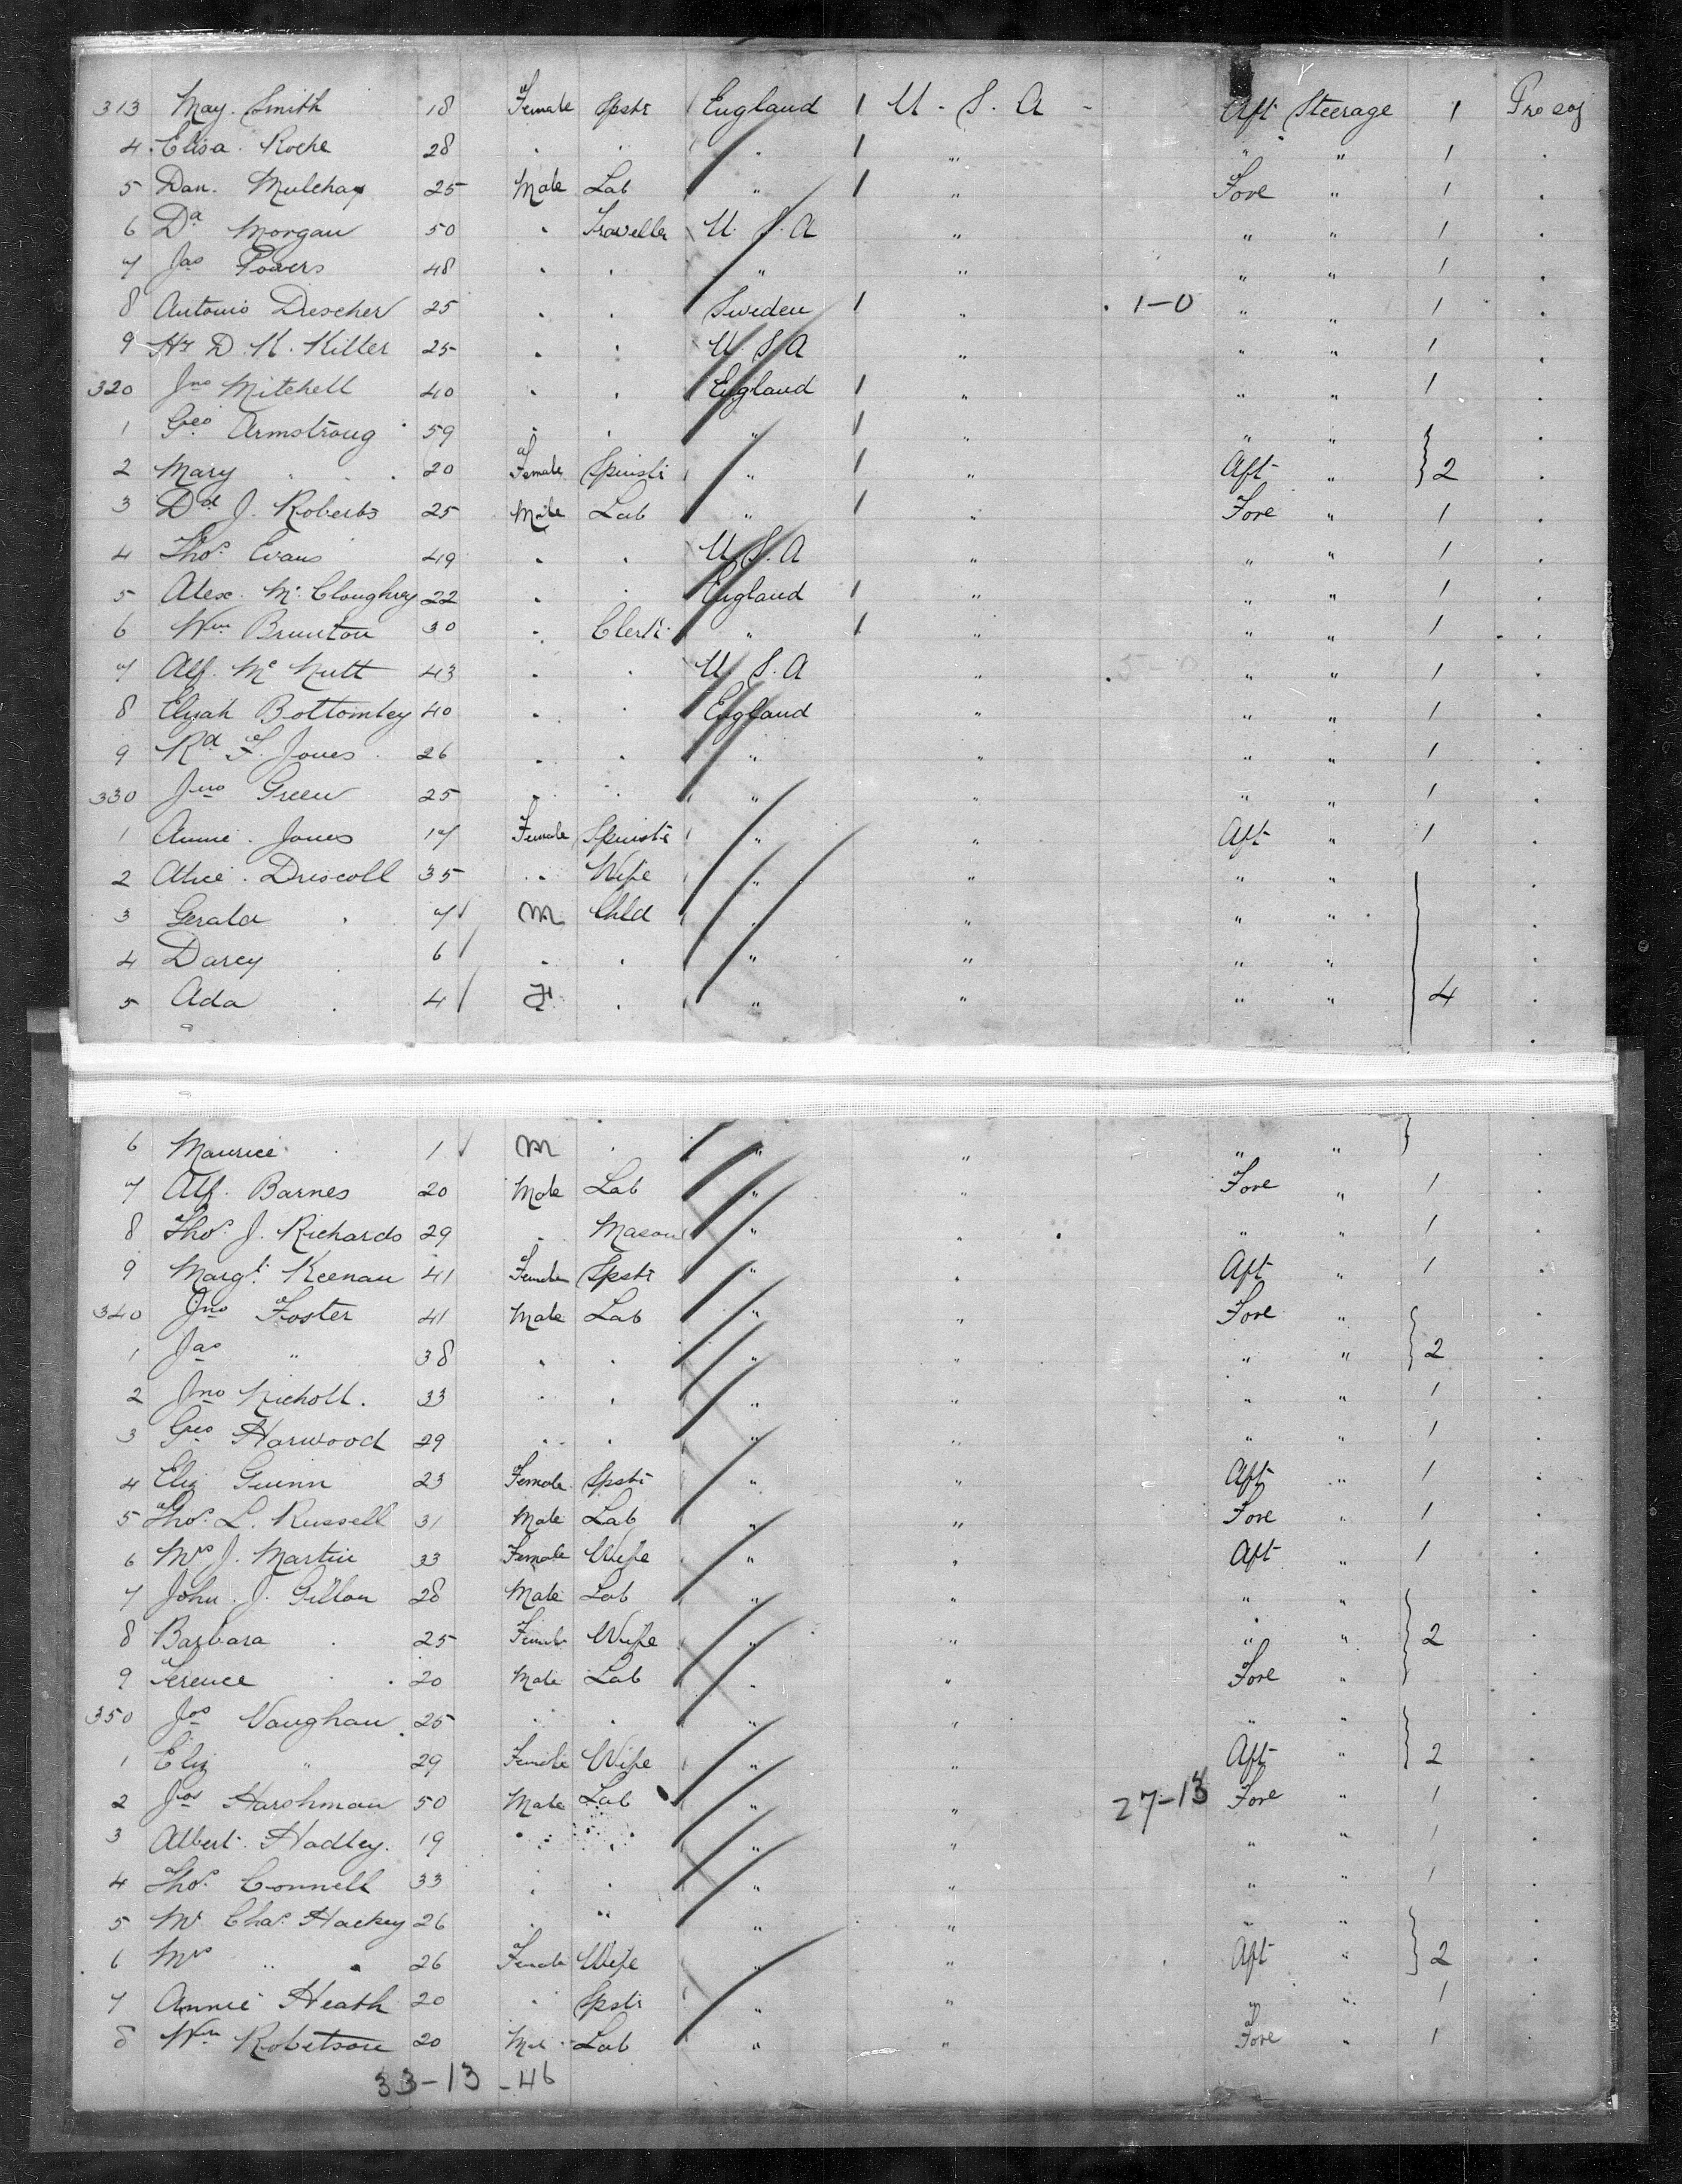 313 May. Smith 18 Female Spstr England 1 U. S. A Aft Steerage 1 Pro soj
4 Elisa. Roche 28 . . " 1 " " " 1 .
5 Dan. Mulchay 25 Male Lab " 1 " Fore " 1 .
6 Da Morgan 50 . Traveller U. S. A " " " 1 .
7 Jas Powers 48 . . " " " " 1 .
8 Antonio Drescher 25 . . Sweden 1 " . 1-0 " " 1 .
9 Hy D. K. Killer 25 . . U. S. A " " " 1 .
320 Jno Mitchell 40 . . England 1 " " " 1 .
1 Geo Armstrong 59 . . " 1 " " " .
2 Mary " 20 Female Spinstr " 1 " Aft " 2 .
3 Dd J. Roberts 25 Male Lab " 1 " Fore " 1 .
4 Thos. Evans 49 . . U. S. A " " " 1 .
5 Alex. Mc Cloughrey 22 . . England 1 " " " 1 .
6 Wm Brunton 30 . Clerk " 1 " " " 1 .
7 Alf. Mc Nutt 43 . . U. S. A " . 5-0 " " 1 .
8 Elijah Bottomley 40 . . England " " " 1 .
9 Rd F. Jones 26 . . " " " " 1 .
330 Jno Green 25 . . " " " " 1 .
1 Annie. Jones 17 Female Spinstr " " Aft " 1 .
2 Alice. Driscoll 35 . Wife " " " " .
3 Gerald . 7 M Chld " " " " .
4 Darcy . 6 . . " " " " .
5 Ada . 4 F . " " " " 4 .
6 Maurice . 1 M . " " " " .
7 Alf. Barnes 20 Male Lab " " Fore " 1 .
8 Thos. J. Richards 29 . Mason " " " " 1 .
9 Margt. Keenan 41 Female Spstr " " Aft " 1 .
340 Jno Foster 41 Male Lab " " Fore " .
1 Jas " 38 . . " " " " 2 .
2 Jno Nicholl. 33 . . " " " " 1 .
3 Geo Harwood 29 . . " " " " 1 .
4 Eliz Guinn 23 Female Spstr " " Aft " 1 .
5 Thos. L. Russell 31 Male Lab " " Fore " 1 .
6 Mrs J. Martin 33 Female Wife " " Aft " 1 .
7 John. J. Gillon 28 Male Lab " " " " .
8 Barbara . 25 Female Wife " " " " 2 .
9 Terence . 20 Male Lab " " Fore " .
350 Jos Vaughan 25 . . " " " " .
1 Eliz " 29 Female Wife " " Aft " 2 .
2 Jos Harshman 50 Male Lab " " 27-13 Fore " 1 .
3 Albert. Hadley. 19 . . " " " " 1 .
4 Thos. Connell 33 . . " " " " 1 .
5 Mr Chas. Hackey 26 . " " " " " .
6 Mrs " . 26 Female Wife " " Aft " 2 .
7 Annie Heath 20 . Spstr " " " " 1 .
8 Wm Robetson 20 Male Lab " " Fore " 1 .
33-13-46